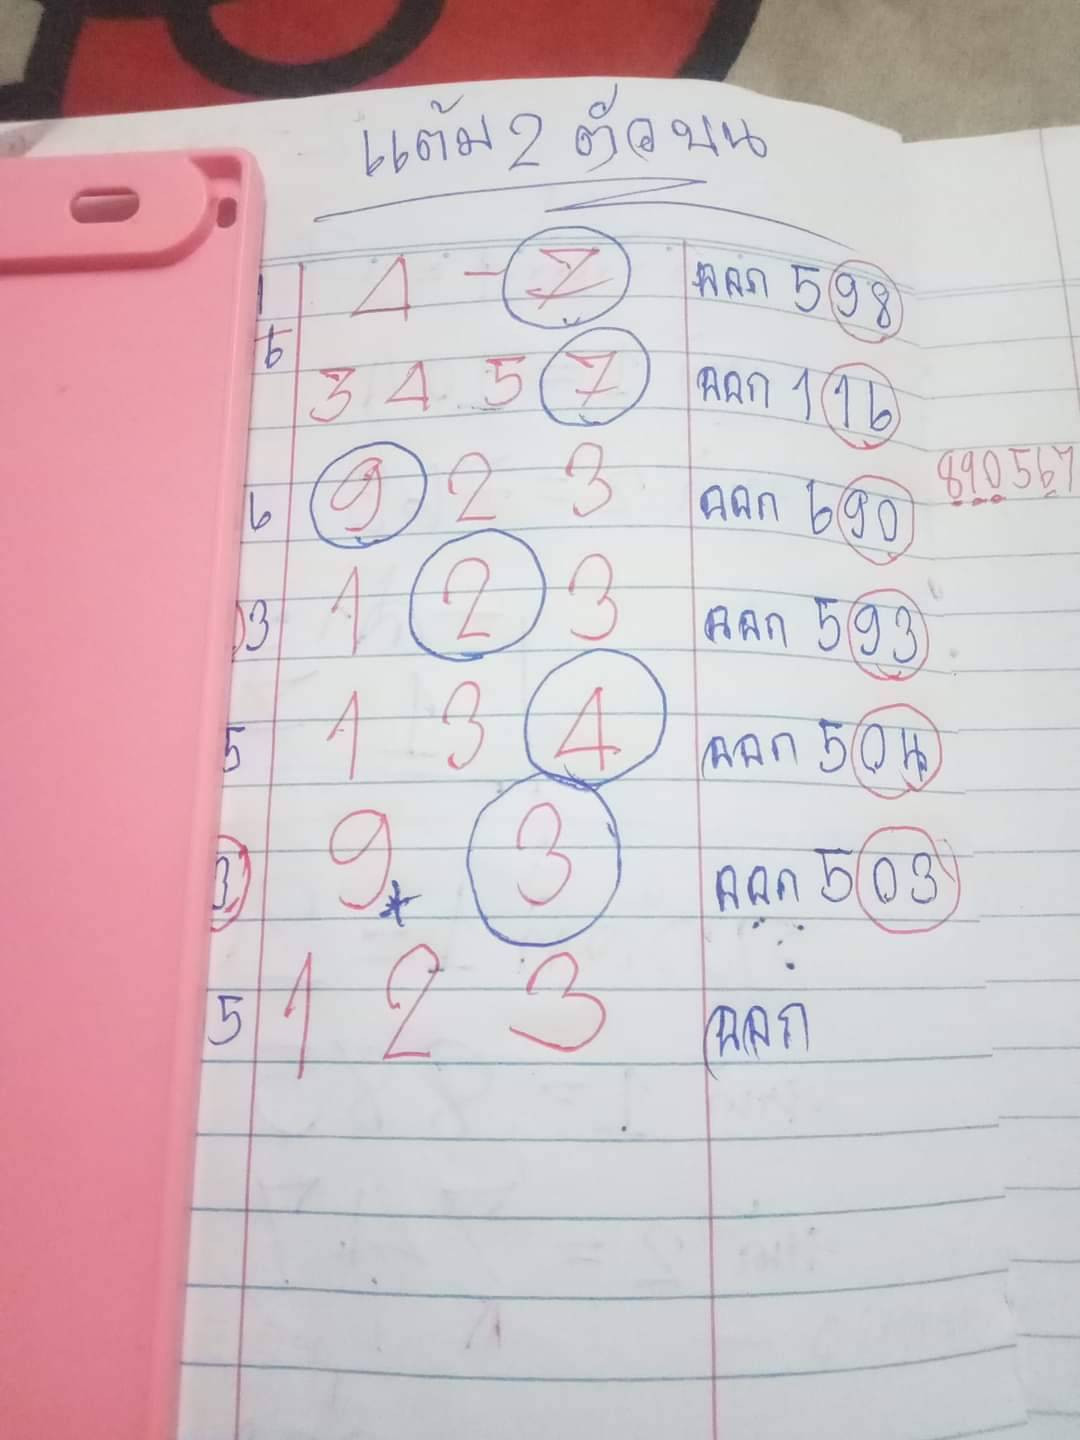 แต้ม 2 ตัวบน
1 4 - 7 ออก 598
6 3 4 5 7 ออก 116
890567
6 9 2 3 ออก 690
3 1 2 3 ออก 593
5 1 3 4 ออก 504
3 9* 3 ออก 503
5 1 2 3 ออก